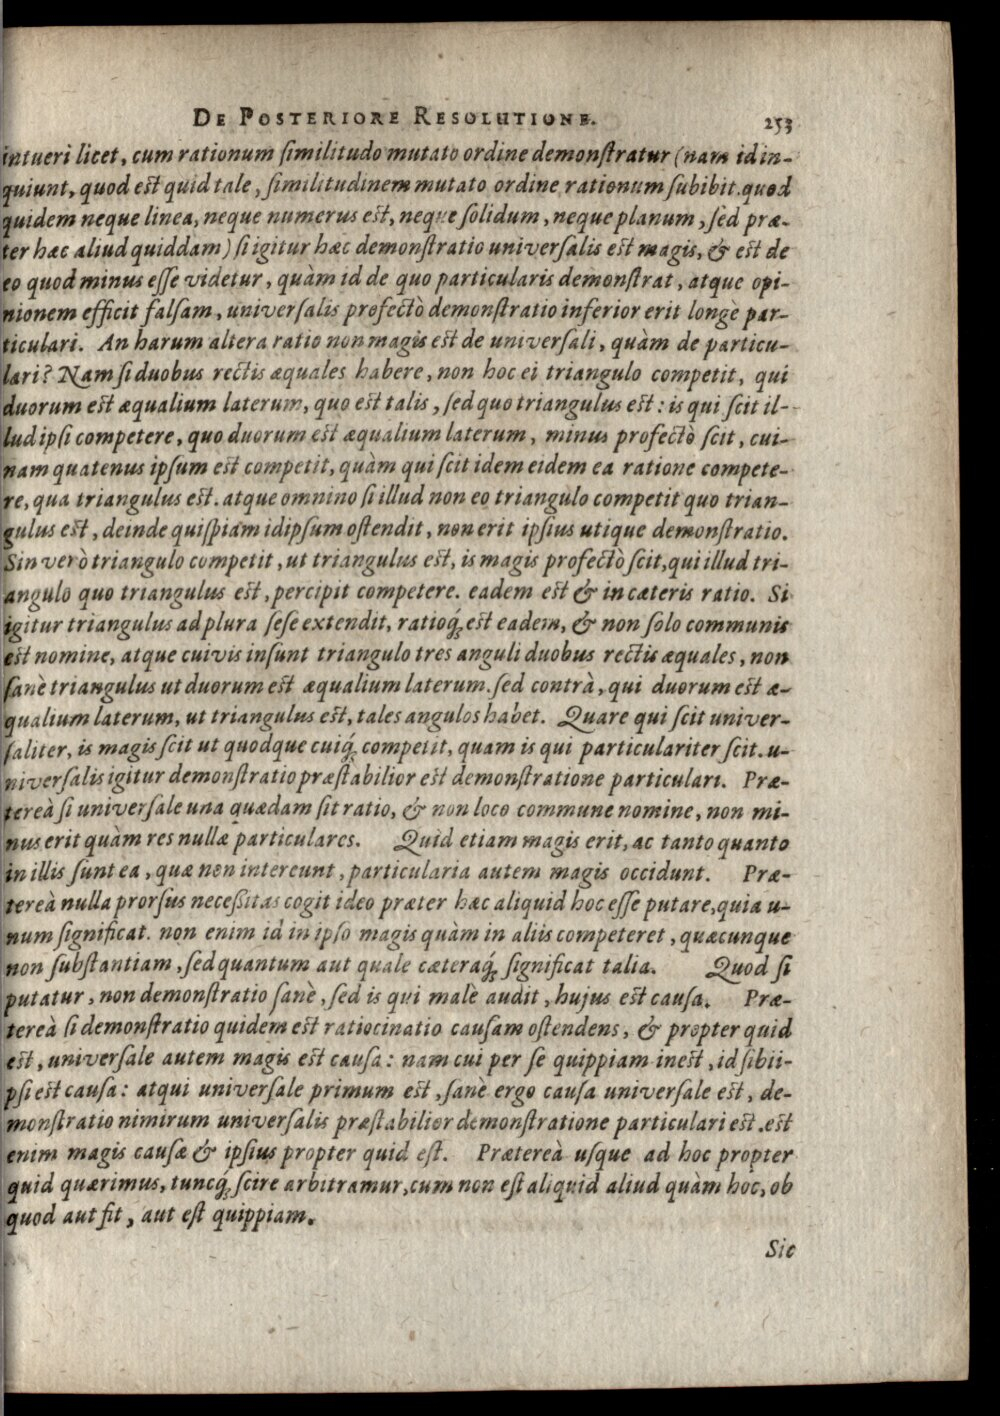 De Posteriore Resolutione. 253
intueri licet, cum rationum similitudo mutato ordine demonstratur (nam id in-
quiunt, quod est quid tale, similitudinem mutato ordine rationum subibit. quod
quidem neque linea, neque numerus est, neque solidum, neque planum, sed præ-
ter hæc aliud quiddam) si igitur hæc demonstratio universalis est magis, & est de
eo quod minus esse videtur, quàm id de quo particularis demonstrat, atque opi-
nionem efficit falsam, universalis profectò demonstratio inferior erit longè par-
ticulari. An harum altera ratio non magis est de universali, quàm de particu-
lari? Nam si duobus rectis æquales habere, non hoc ei triangulo competit, qui
duorum est æqualium laterum, quo est talis, sed quo triangulus est: is qui scit il-
lud ipsi competere, quo duorum est æqualium laterum, minus profectò scit, cui-
nam quatenus ipsum est competit, quàm qui scit idem eidem ea ratione compete-
re, qua triangulus est. atque omnino si illud non eo triangulo competit quo trian-
gulus est, deinde quispiam idipsum ostendit, non erit ipsius utique demonstratio.
Sin verò triangulo competit, ut triangulus est, is magis profectò scit, qui illud tri-
angulo quo triangulus est, percipit competere. eadem est & in cæteris ratio. Si
igitur triangulus ad plura sese extendit, ratioq́; est eadem, & non solo communis
est nomine, atque cuivis insunt triangulo tres anguli duobus rectis æquales, non
sanè triangulus ut duorum est æqualium laterum. sed contrà, qui duorum est æ-
qualium laterum, ut triangulus est, tales angulos habet. Quare qui scit univer-
saliter, is magis scit ut quodque cuiq́; competit, quam is qui particulariter scit. u-
niversalis igitur demonstratio præstabilior est demonstratione particulari. Præ-
tereà si universale una quædam sit ratio, & non loco commune nomine, non mi-
nus erit quàm res nullæ particulares. Quid etiam magis erit, ac tanto quanto
in illis sunt ea, quæ non intereunt, particularia autem magis occidunt. Præ-
tereà nulla prorsus necessitas cogit ideo præter hæc aliquid hoc esse putare, quia u-
num significat. non enim id in ipso magis quàm in aliis competeret, quæcunque
non substantiam, sed quantum aut quale cæteraq́; significat talia. Quod si
putatur, non demonstratio sanè, sed is qui malè audit, hujus est causa. Præ-
tereà si demonstratio quidem est ratiocinatio causam ostendens, & propter quid
est, universale autem magis est causa: nam cui per se quippiam inest, id sibi i-
psi est causa: atqui universale primum est, sanè ergo causa universale est, de-
monstratio nimirum universalis præstabilior demonstratione particulari est. est
enim magis causæ & ipsius propter quid est. Prætereà usque ad hoc propter
quid quærimus, tuncq́; scire arbitramur, cum non est aliquid aliud quàm hoc, ob
quod aut fit, aut est quippiam.
Sic